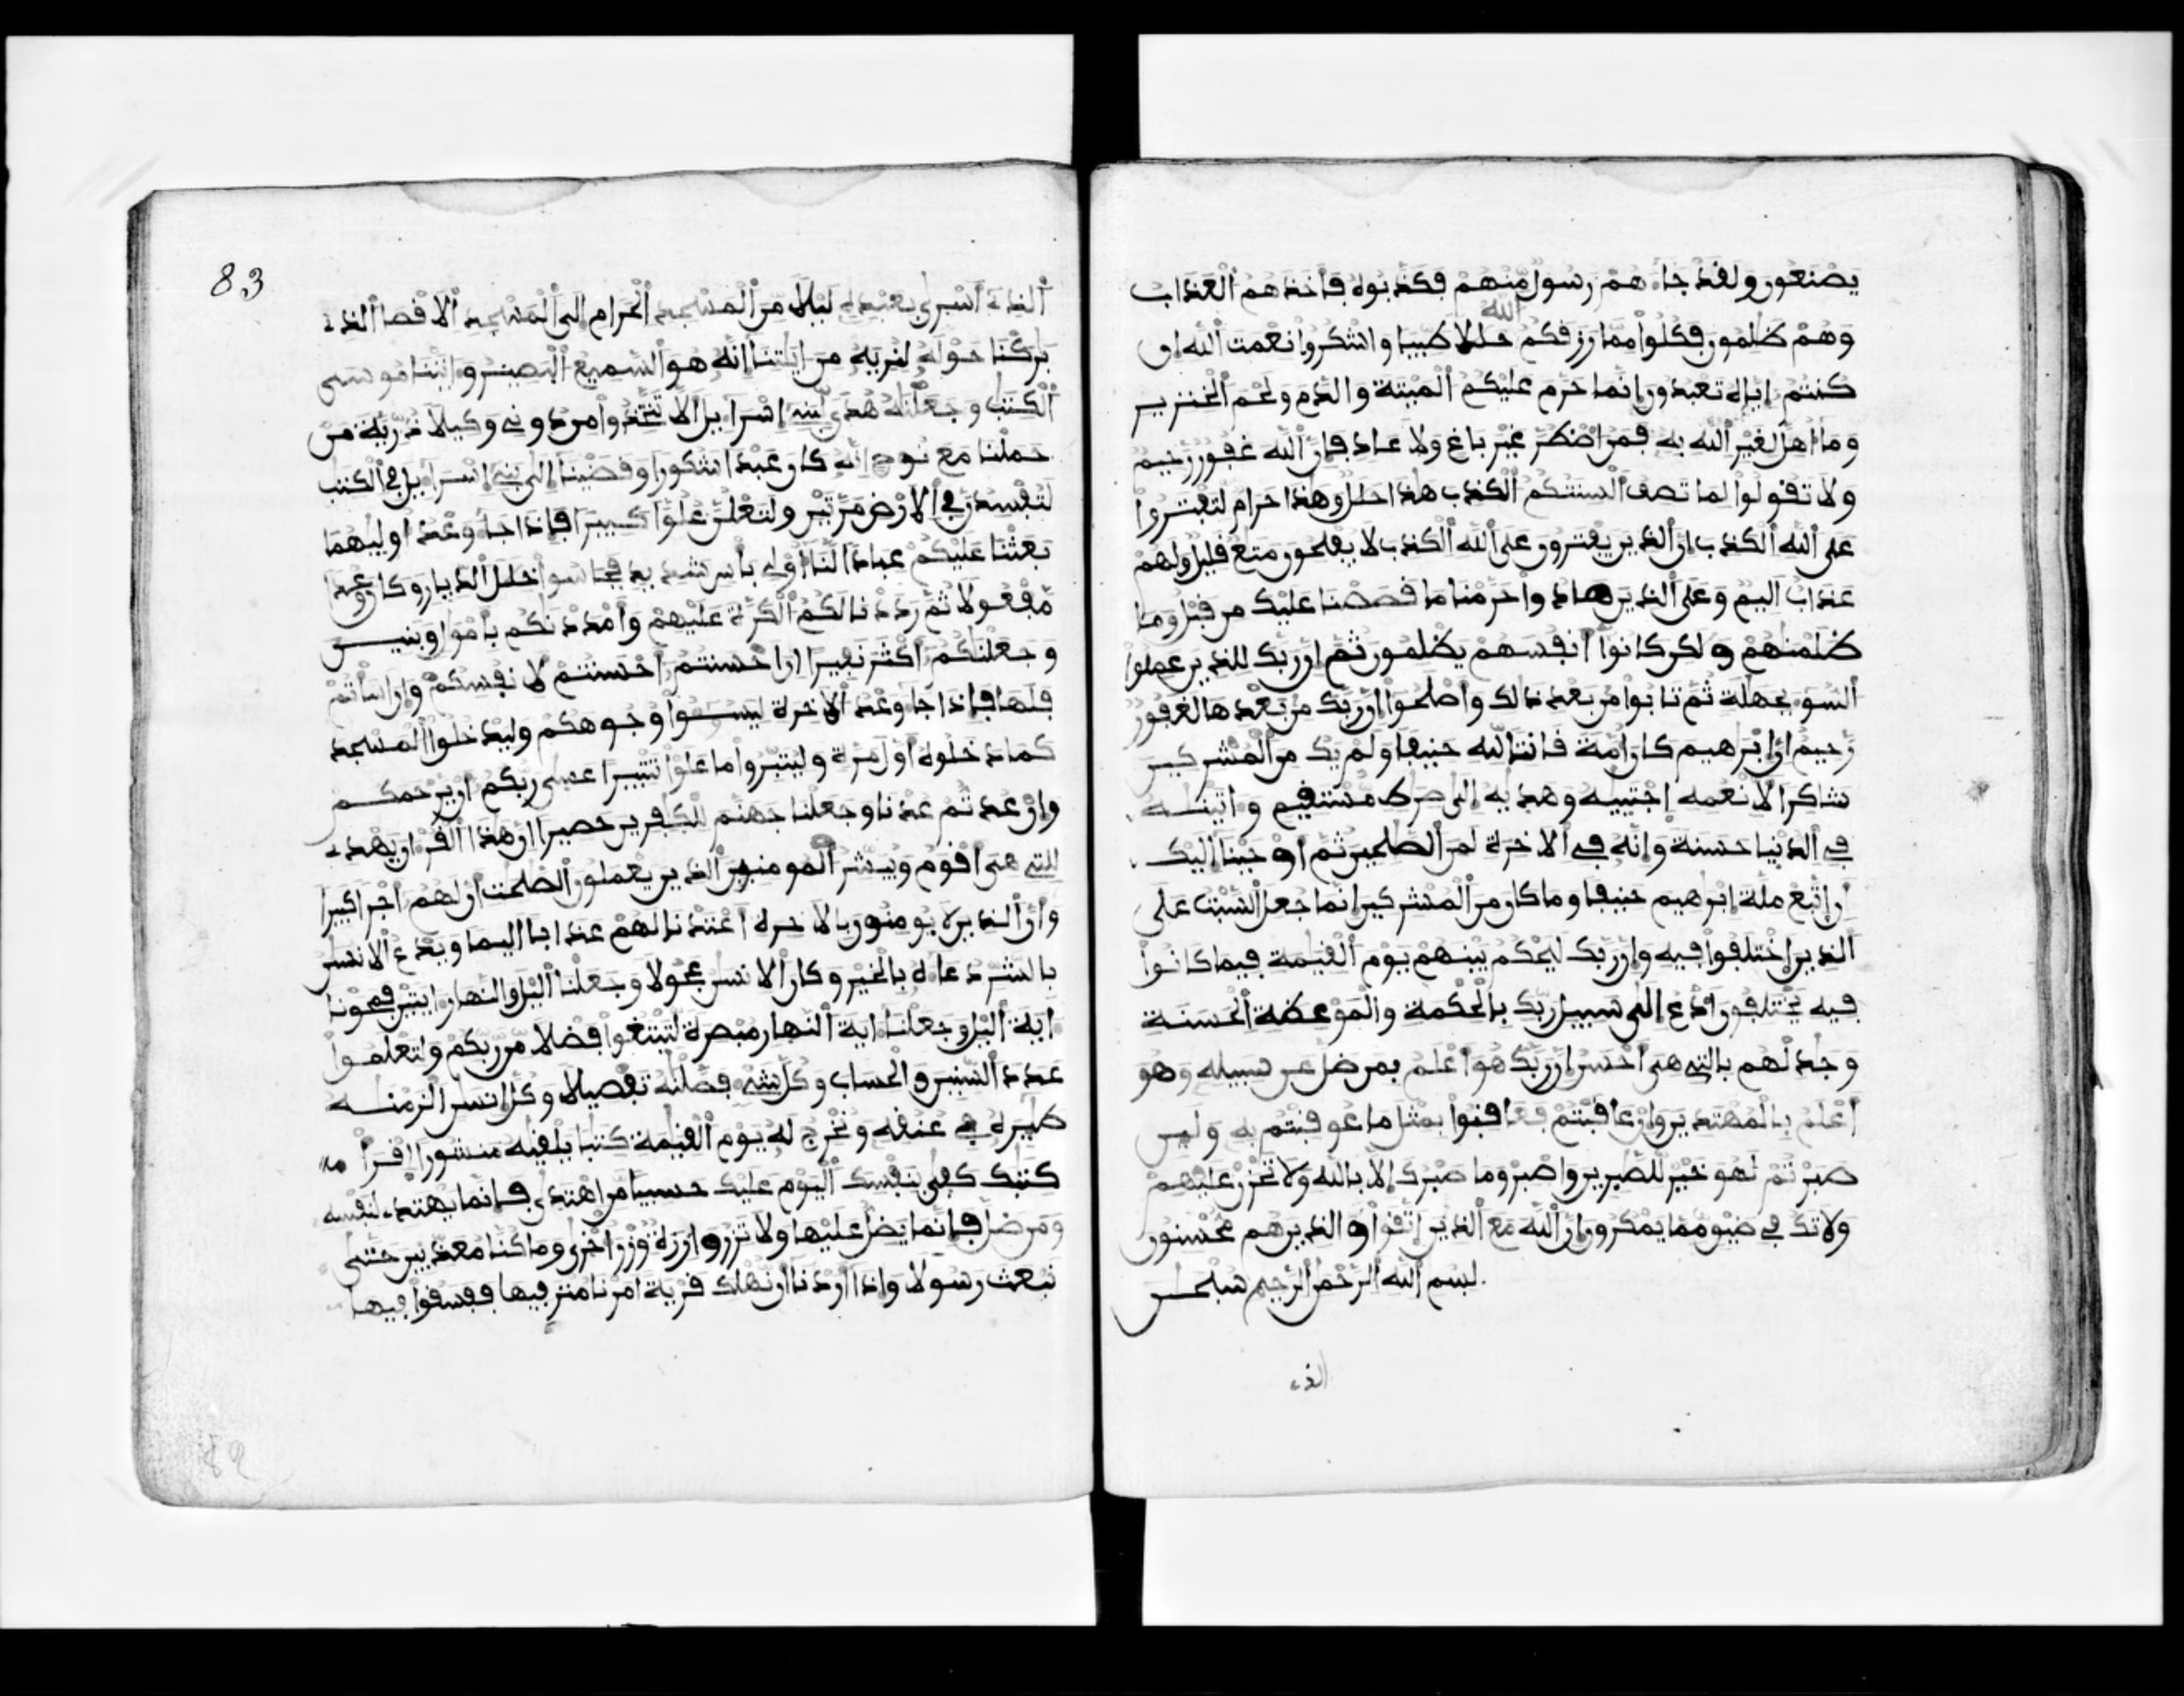 يصنعون ولقد جاءهم رسول منهم فكذبوه فأخذهم العذاب
وهم ظلمون فكلوا مما رزقكم الله حللا طيبا واشكروا نعمت الله ان
كنتم إياه تعبدون إنما حرم عليكم الميتة والدم ولحم الخنزير
وما أهل لغير الله به فمن اضطر غير باغ ولا عاد فإن الله غفور رحيم
ولا تقولوا لما تصف ألسنتكم الكذب هذا حلل وهذا حرام لتفتروا
على الله الكذب إن الذين يفترون على الله الكذب لا يفلحون متع قليل ولهم
عذاب أليم وعلى الذين هادوا حرمنا ما قصصنا عليك من قبل وما
ظلمنهم ولكن كانوا أنفسهم يظلمون ثم إن ربك للذين عملوا
السوء بجهلة ثم تابوا من بعد ذالك وأصلحوا إن ربك من بعدها لغفور
رحيم إن إبرهيم كان أمة قانتا لله حنيفا ولم يك من المشركين
شاكرا لأنعمه اجتبيه وهديه إلى صرط مستقيم وءاتينه
في الدنيا حسنة وإنه في الاخرة لمن الصلحين ثم أوحينا إليك
أن اتبع ملة إبرهيم حنيفا وما كان من المشركين إنما جعل السبت على
الذين اختلفوا فيه وإن ربك ليحكم بينهم يوم القيمة فيما كانوا
فيه يختلفون ادع إلى سبيل ربك بالحكمة والموعظة الحسنة
وجدلهم بالتي هي أحسن إن ربك هو أعلم بمن ضل عن سبيله وهو
أعلم بالمهتدين وإن عاقبتم فعاقبوا بمثل ما عوقبتم به ولين
صبرتم لهو خير للصبرين واصبر وما صبرك إلا بالله ولا تحزن عليهم
ولا تك في ضيق مما يمكرون إن الله مع الذين اتقوا والذين هم محسنون
بسم الله الرحمن الرحيم سبحن
الذي
83
الذي أسرى بعبده ليلا من المسجد الحرام إلى المسجد الاقصا الذي
بركنا حوله لنريه من ءايتنا إنه هو السميع البصير وءاتينا موسى
الكتب وجعلنه هدى لبني إسراءيل ألا تتخذوا من دوني وكيلا ذرية من
حملنا مع نوح إنه كان عبدا شكورا وقضينا إلى بني إسراءيل في الكتب
لتفسدن في الارض مرتين ولتعلن علوا كبيرا فإذا جاء وعد أوليهما
بعثنا عليكم عبادا لنا أولي بأس شديد فجاسوا خلل الديار وكان وعدا
مفعولا ثم رددنا لكم الكرة عليهم وأمددنكم بأمول وبنين
وجعلنكم أكثر نفيرا إن احسنتم أحسنتم لأنفسكم وإن اسأتم
فلها فإذا جاء وعد الاخرة ليسوءوا وجوهكم وليدخلوا المسجد
كما دخلوه أول مرة وليتبروا ما علوا تتبيرا عسى ربكم أن يرحمكم
وإن عدتم عدنا وجعلنا جهنم للكفرين حصيرا إن هذا القرءان يهدي
للتي هي أقوم ويبشر المومنين الذين يعملون الصلحت أن لهم أجرا كبيرا
وأن الذين لا يومنون بالاخرة أعتدنا لهم عذابا أليما ويدع الانسن
بالشر دعاءه بالخير وكان الانسن عجولا وجعلنا اليل والنهار ءايتين فمحونا
ءاية اليل وجعلنا ءاية النهار مبصرة لتبتغوا فضلا من ربكم ولتعلموا
عدد السنين والحساب وكل شيء فصلنه تفصيلا وكل إنسن الزمنه
طيره في عنقه ونخرج له يوم القيمة كتبا يلقيه منشورا اقرأ
كتبك كفى بنفسك اليوم عليك حسيبا من اهتدى فإنما يهتدي لنفسه
ومن ضل فإنما يضل عليها ولا تزر وازرة وزر أخرى وما كنا معذبين حتى
نبعث رسولا وإذا أردنا أن نهلك قرية امرنا مترفيها ففسقوا فيها